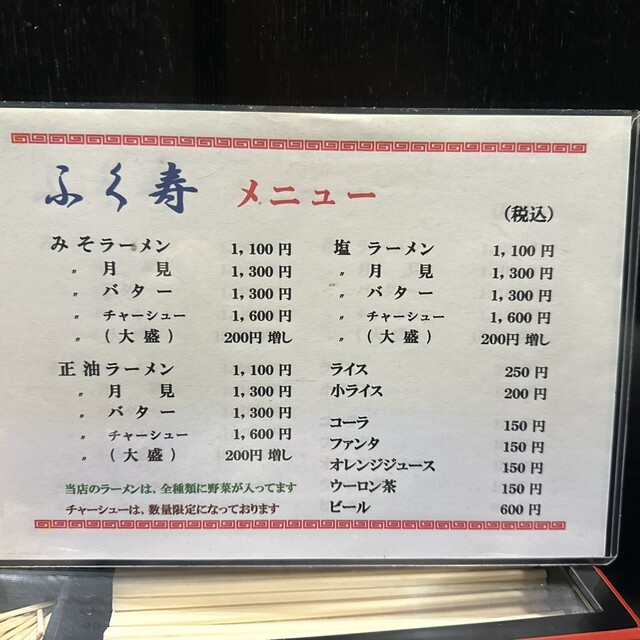 ふく寿 メニュー
(税込)
みそラーメン 1,100円
〃 月見 1,300円
〃 バター 1,300円
〃 チャーシュー 1,600円
〃 (大盛) 200円増し
正油ラーメン 1,100円
〃 月見 1,300円
〃 バター 1,300円
〃 チャーシュー 1,600円
〃 (大盛) 200円増し
当店のラーメンは、全種類に野菜が入ってます
チャーシューは、数量限定になっております
塩 ラーメン 1,100円
〃 月見 1,300円
〃 バター 1,300円
〃 チャーシュー 1,600円
〃 (大盛) 200円増し
ライス 250円
小ライス 200円
コーラ 150円
ファンタ 150円
オレンジジュース 150円
ウーロン茶 150円
ビール 600円